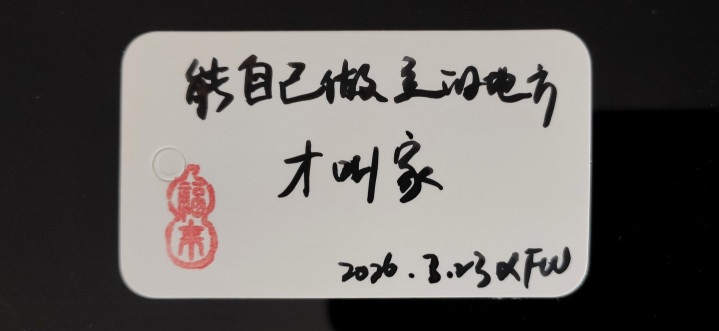 能自己做主的地方
才叫家
福来
2026.3.23 αFW